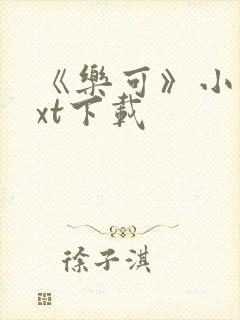 《樂可》小
xt下載
徐子淇